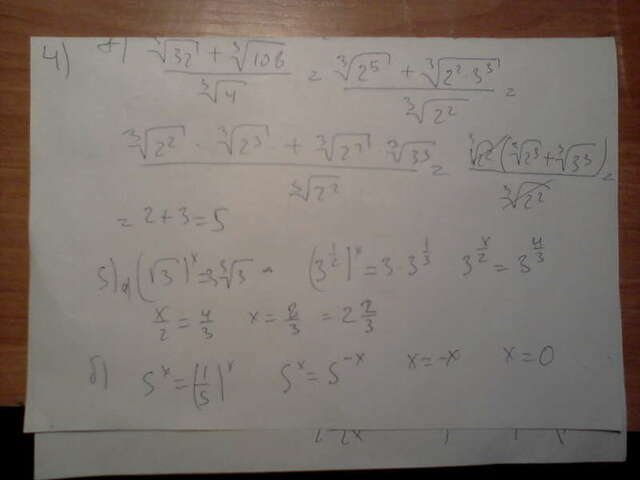 4) ∛32 + ∛106 / ∛4 = ∛2⁵ + ∛2²·3³ / ∛2² =
∛2² · ∛2³ + ∛2² · ∛3³ / ∛2² = ∛2² (∛2³ + ∛3³) / ∛2² =
= 2 + 3 = 5
5) а) (√3)ˣ = 3∛3 (3^(1/2))ˣ = 3 · 3^(1/3) 3^(x/2) = 3^(4/3)
x/2 = 4/3 x = 8/3 = 2 2/3
б) 5ˣ = (1/5)ˣ 5ˣ = 5⁻ˣ x = -x x = 0